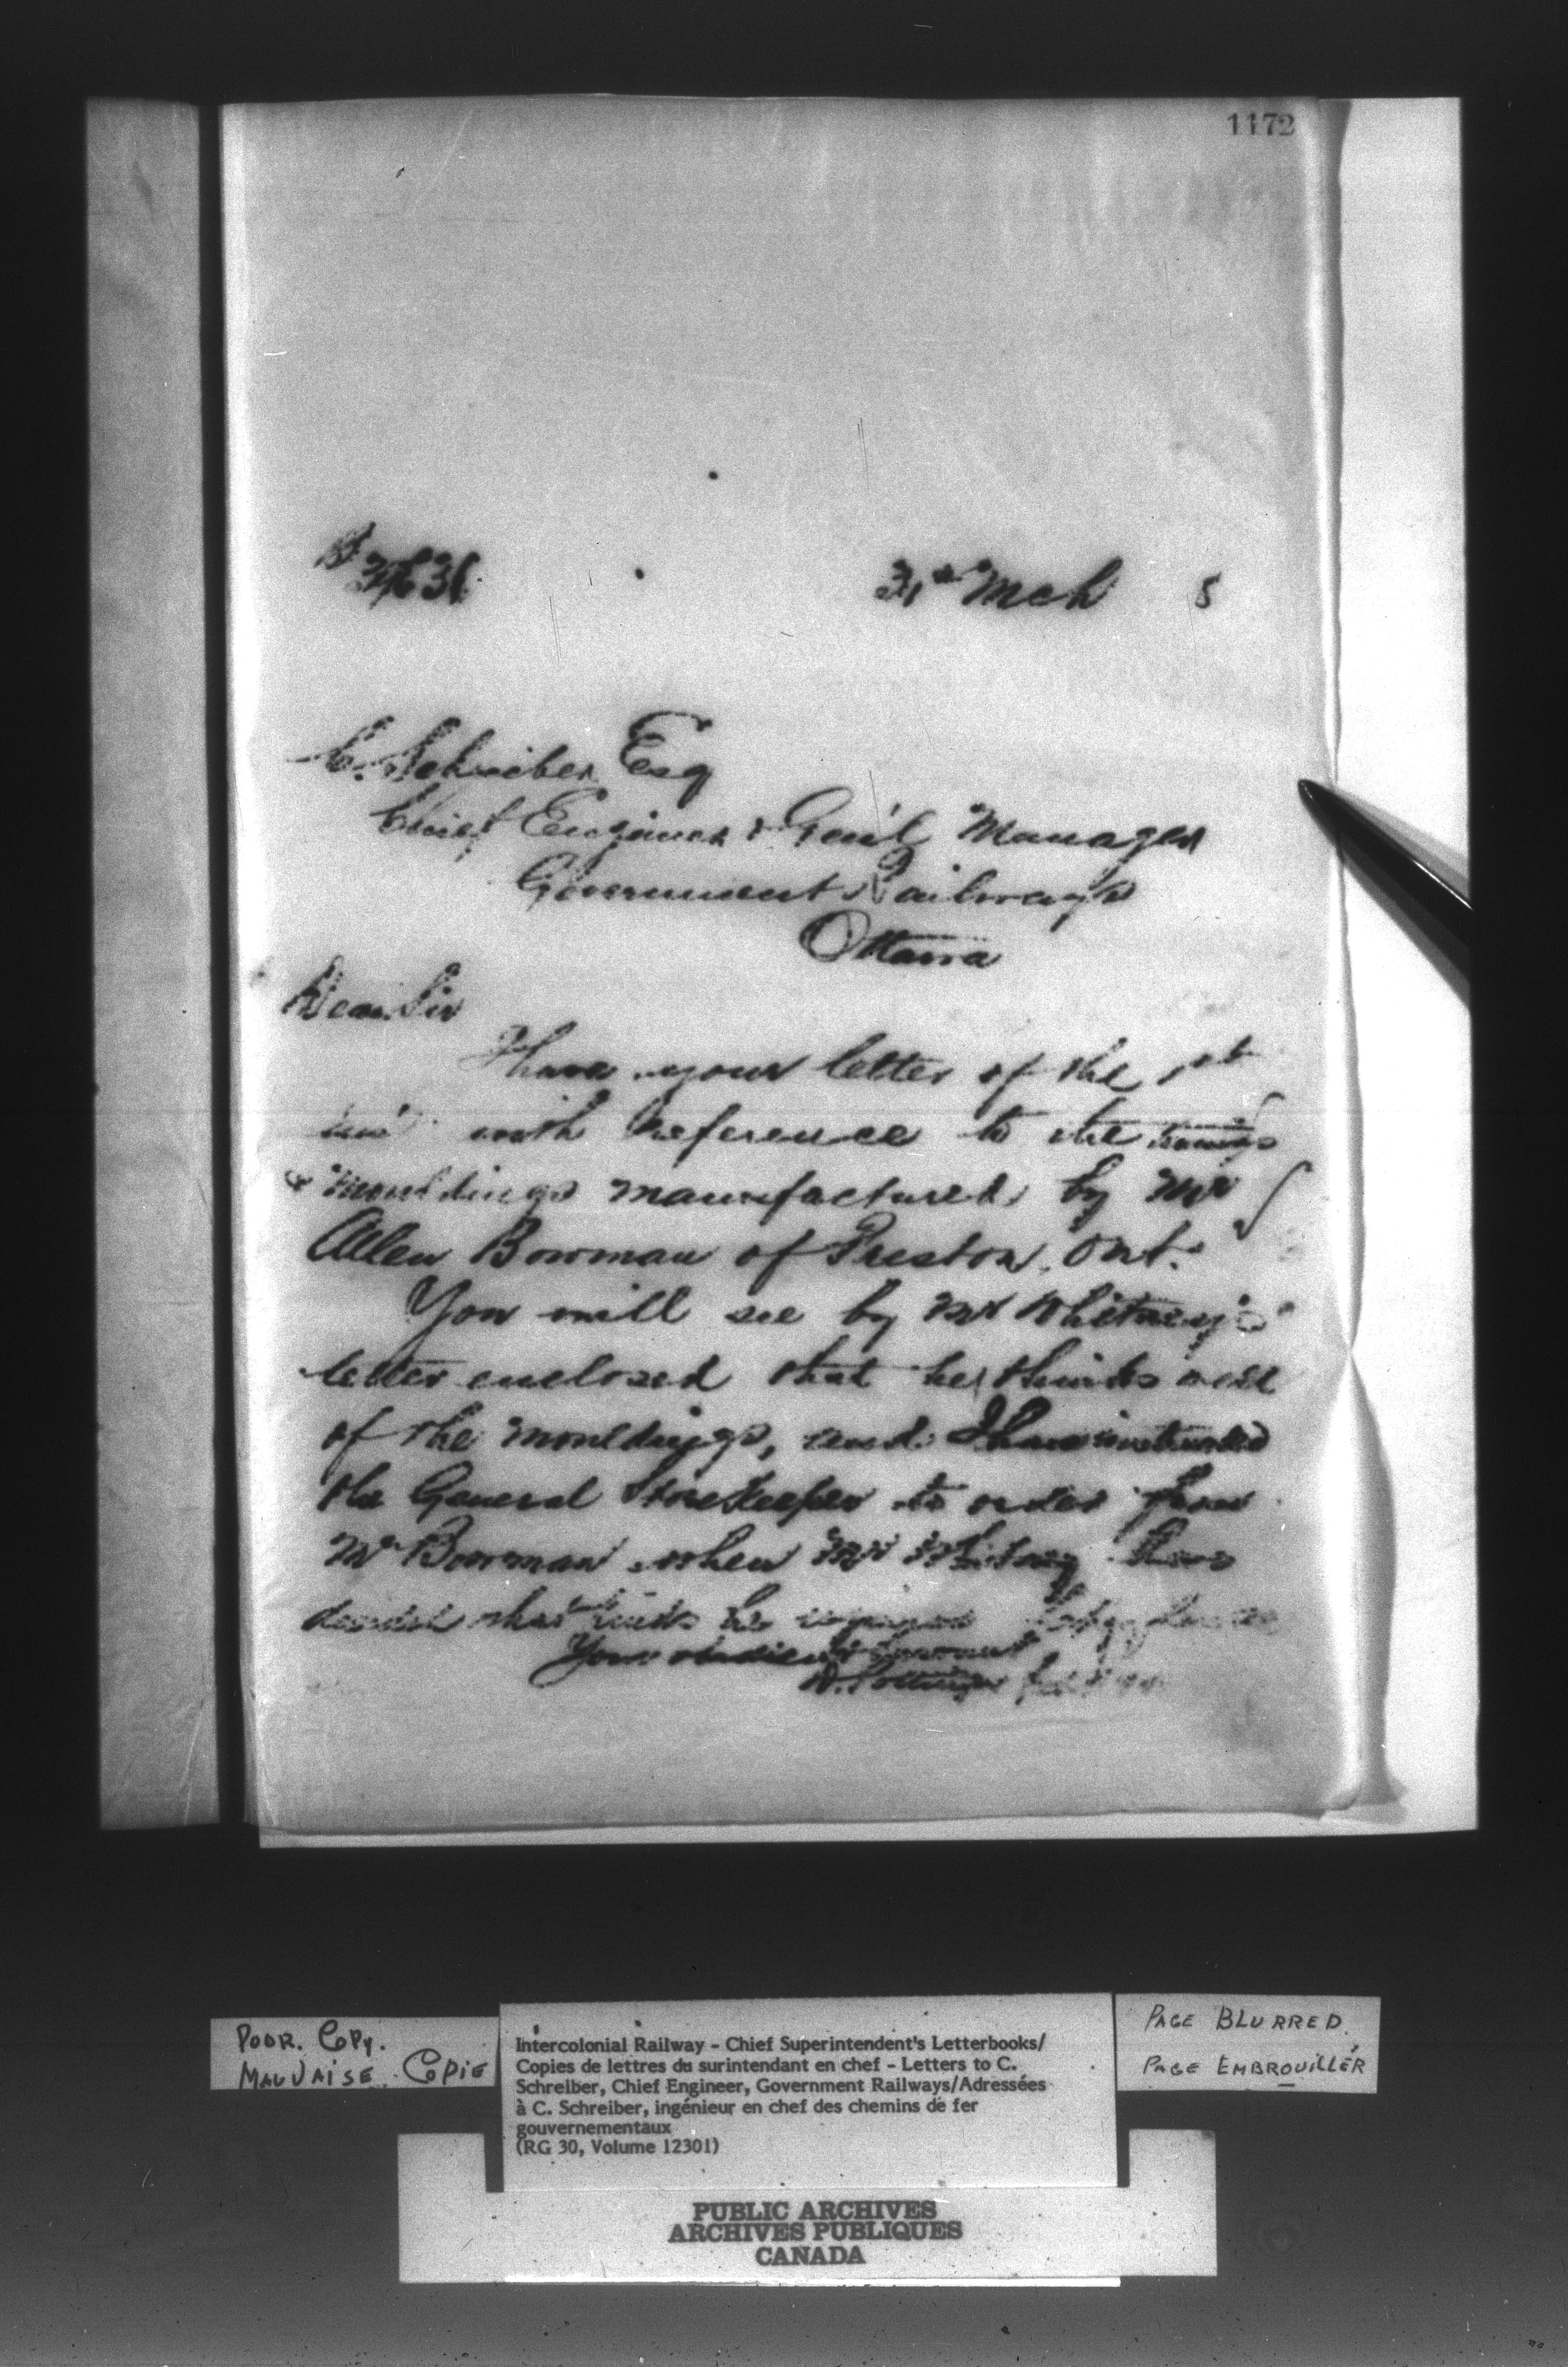 1172
31st Mch 5
C. Schreiber Esq
Chief Engineer & Gen'l Manager
Government Railways
Ottawa
Dear Sir
I have your letter of the 1st
with reference to the
mouldings manufactured by Mr
Allen Bowman of Preston, Ont.
You will see by Mr Whitney's
letter enclosed that he thinks well
of the mouldings, and I have instructed
the General Storekeeper to order from
Mr Bowman when Mr Whitney has
decided what kinds he
Your obedient servant
D. Pottinger
POOR. COPY.
MAUVAISE COPIE
Intercolonial Railway - Chief Superintendent's Letterbooks/
Copies de lettres du surintendant en chef - Letters to C.
Schreiber, Chief Engineer, Government Railways/Adressées
à C. Schreiber, ingénieur en chef des chemins de fer
gouvernementaux
(RG 30, Volume 12301)
PAGE BLURRED.
PAGE EMBROUILLÉR
PUBLIC ARCHIVES
ARCHIVES PUBLIQUES
CANADA